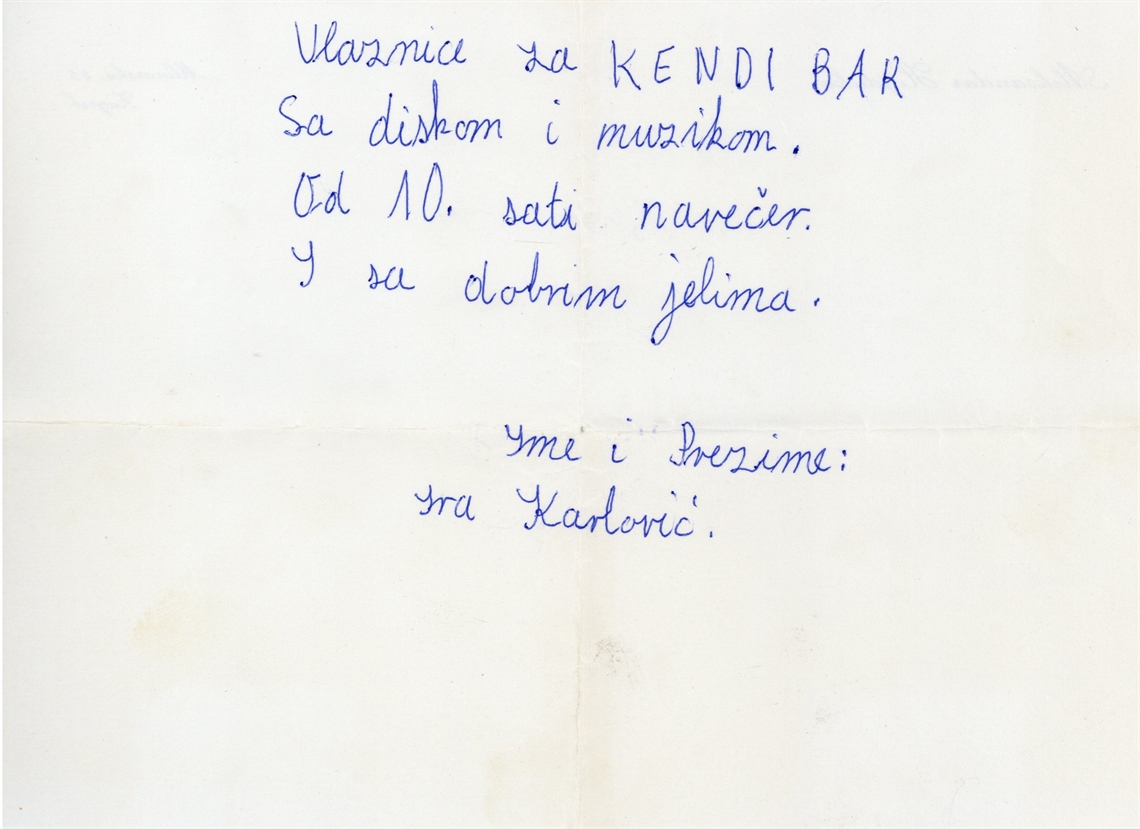 Ulaznice za KENDI BAR
Sa diskom i muzikom.
Od 10. sati navečer.
I sa dobrim jelima.
Ime i Prezime:
Ira Karlović.